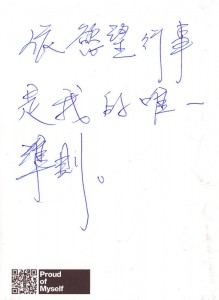 依慾望行事
是我的唯一
準則。
Proud
of
Myself